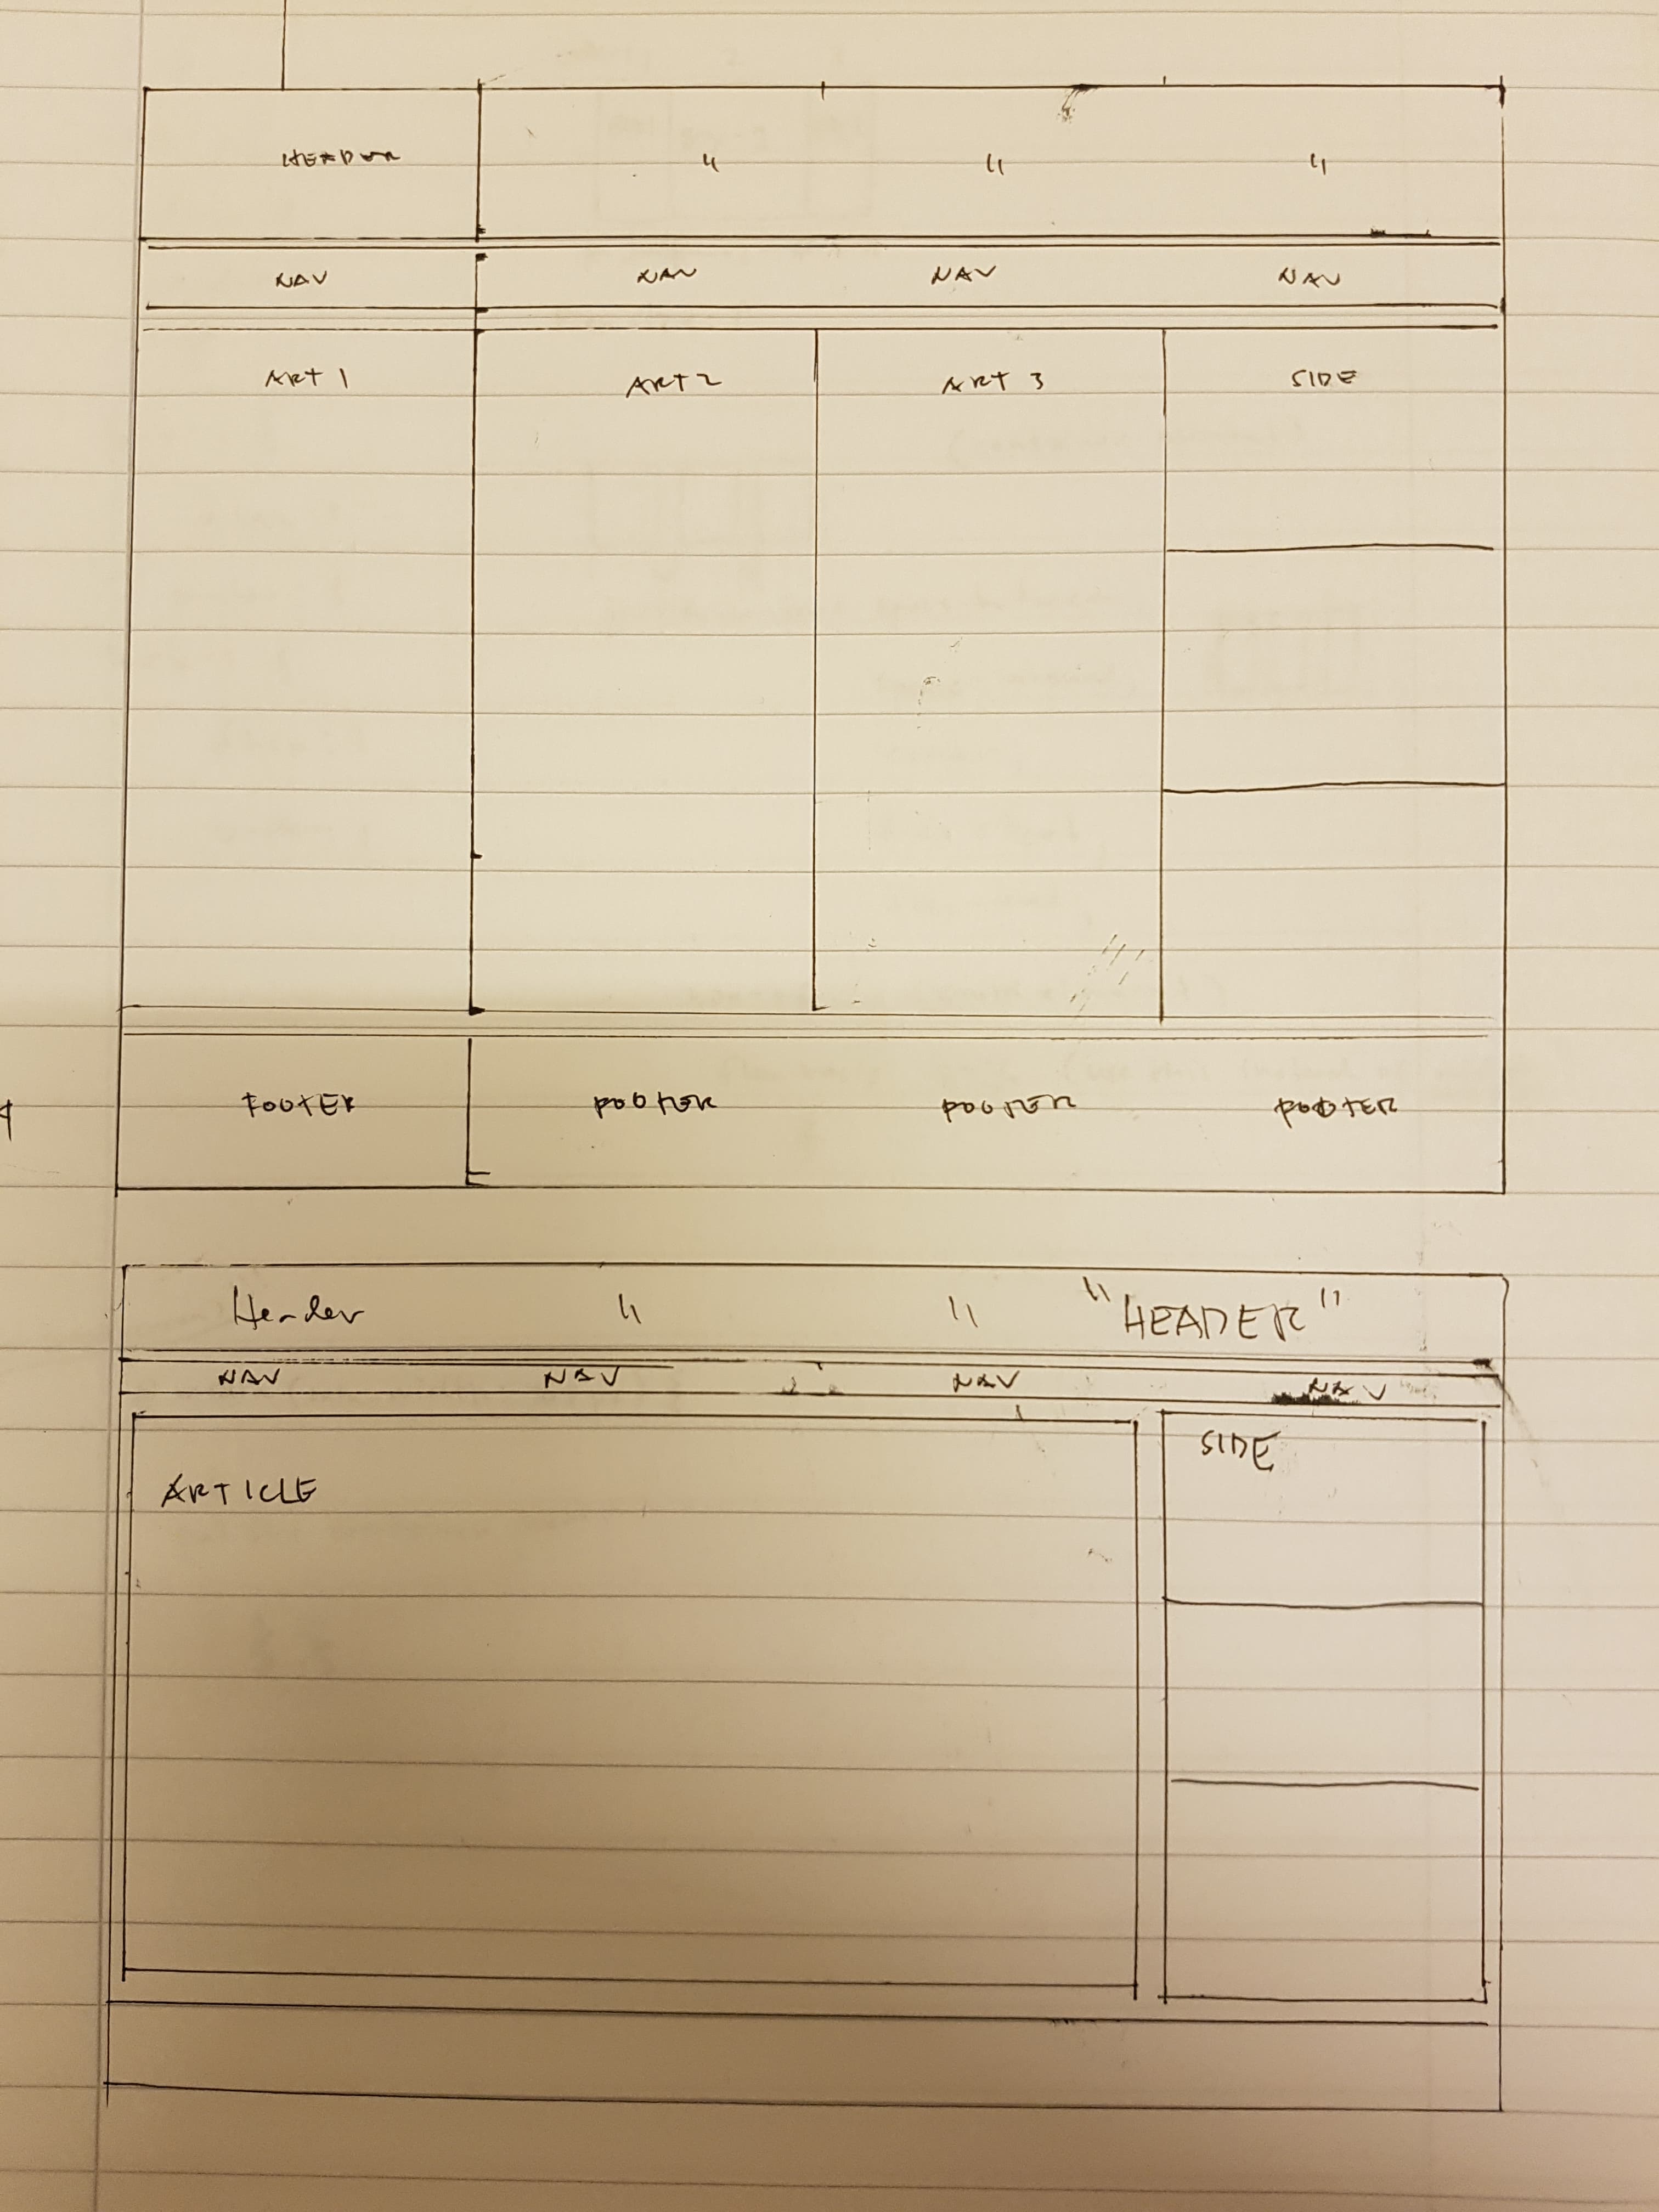 HEADER " " "
NAV NAV NAV NAV
ART 1 ART 2 ART 3 SIDE
FOOTER FOOTER FOOTER FOOTER
Header " " "HEADER"
NAV NAV NAV NAV
SIDE
ARTICLE